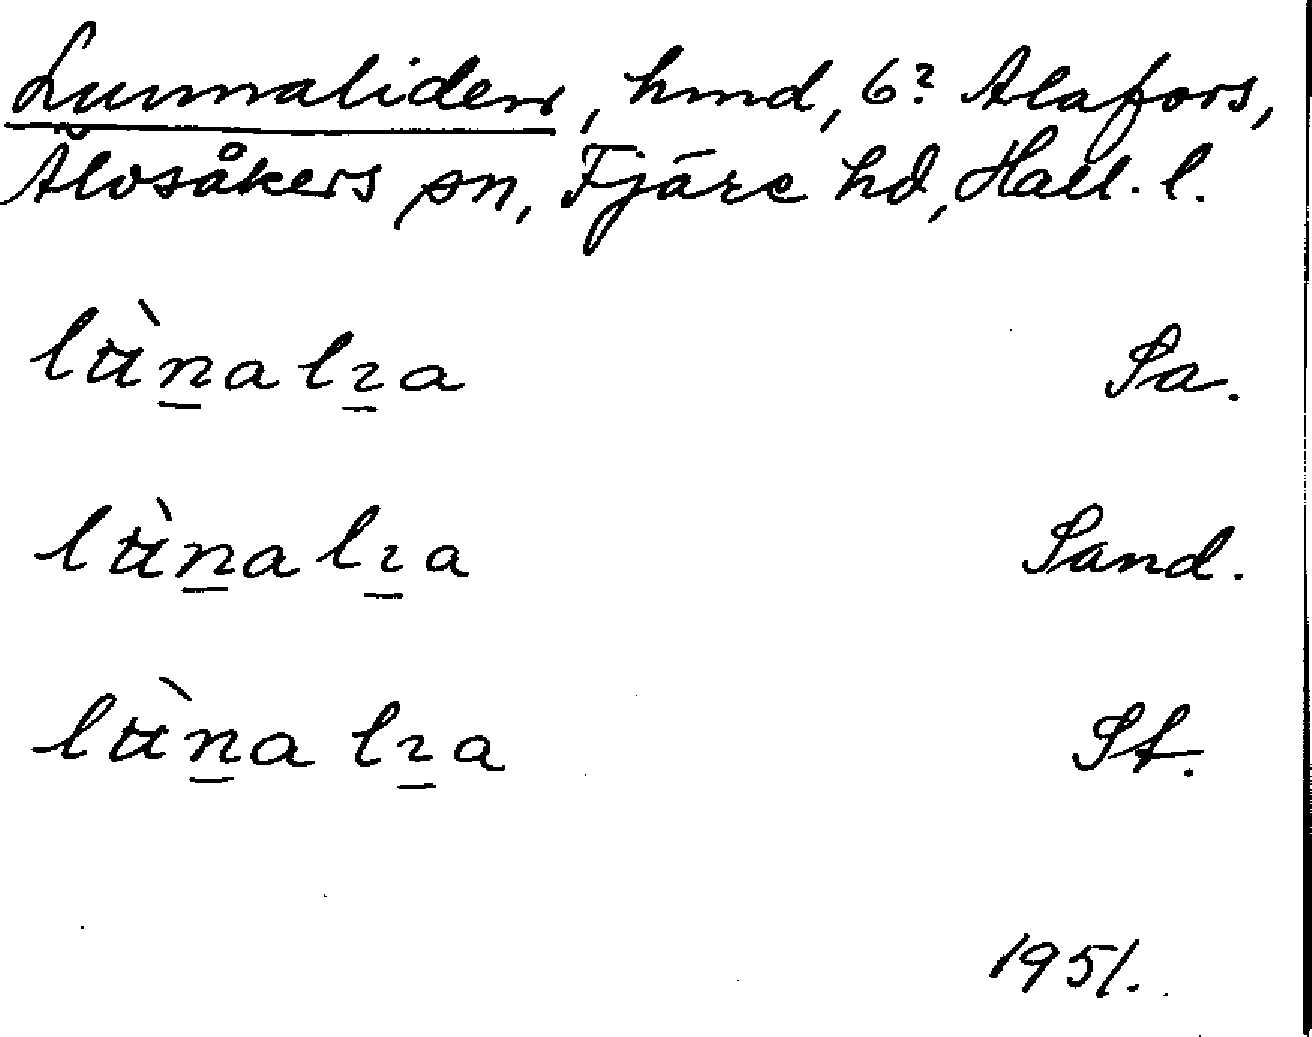 Lunnaliden, hmd, 6² Alafors,
Älvsåkers sn, Fjäre hd, Hall. l.
lʉ̀n̲alɪ̲a Sa.
lʉ̀n̲alɪ̲a Sand.
lʉ̀n̲a lɪ̲a St.
1951.